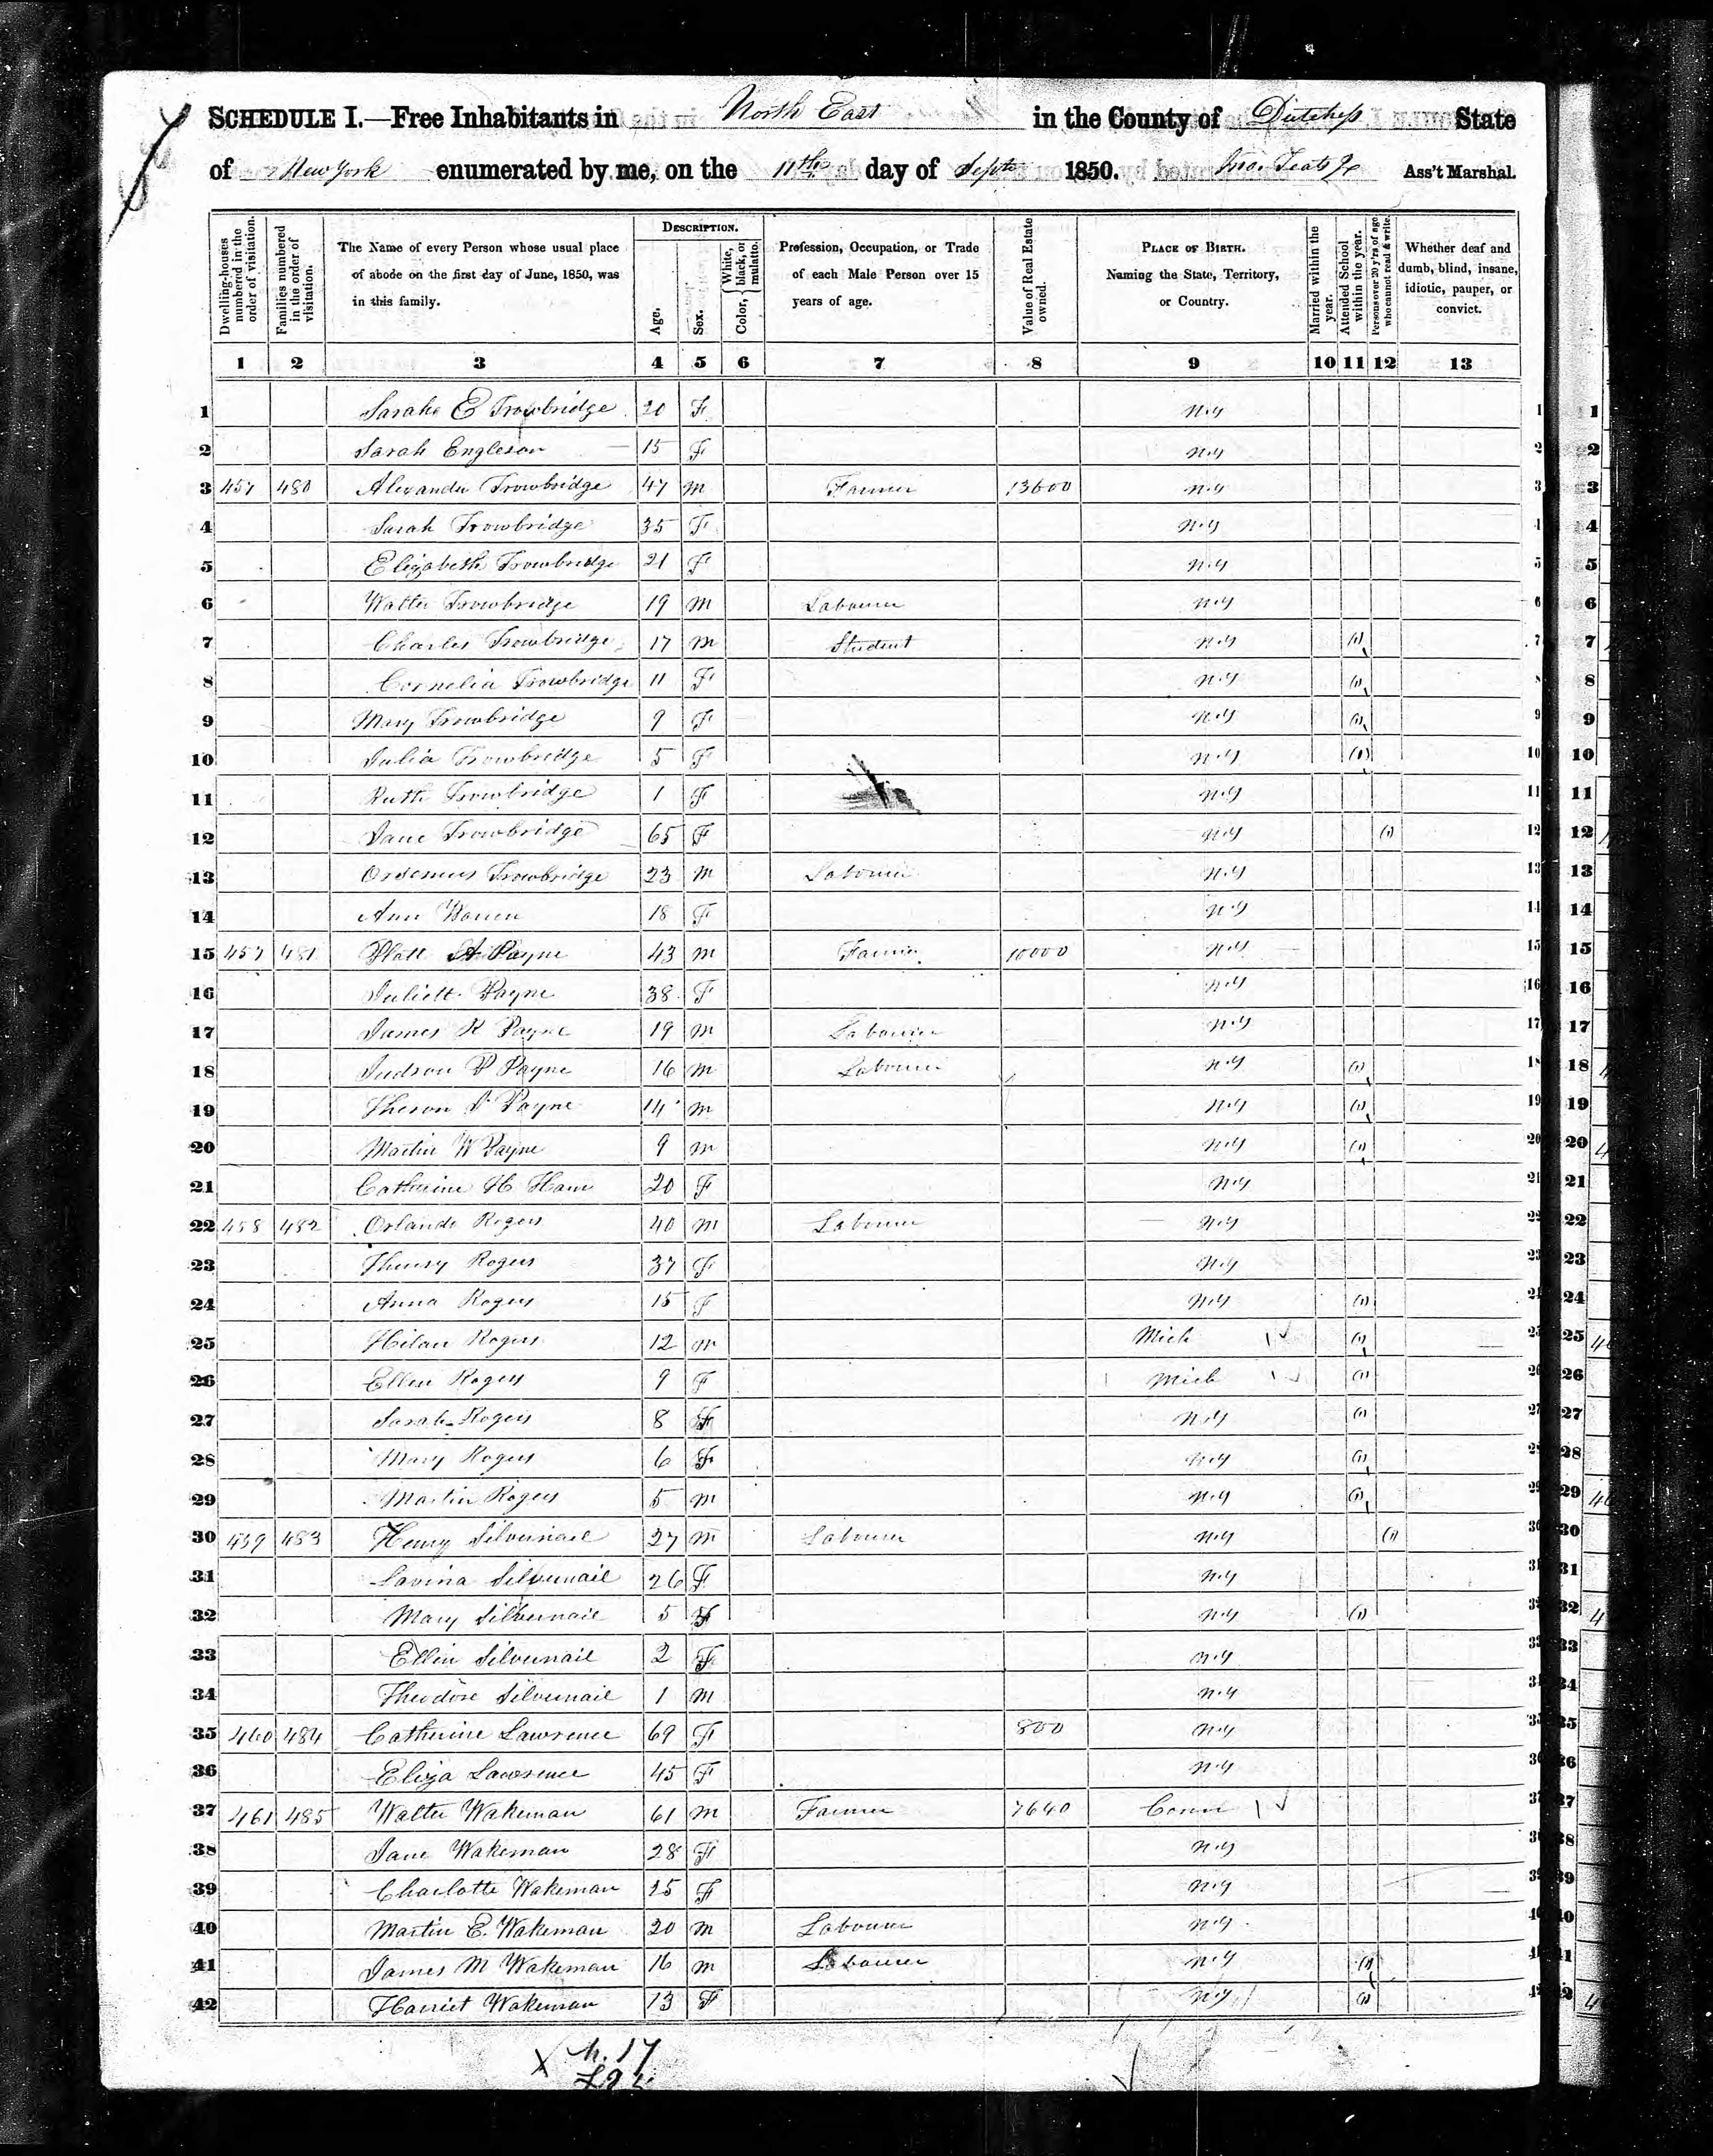 SCHEDULE I.—Free Inhabitants in North East in the County of Dutchess State
of New York enumerated by me, on the 11th day of Septr 1850. Ass't Marshal.
Dwelling-houses numbered in the order of visitation.
Families numbered in the order of visitation.
The Name of every Person whose usual place of abode on the first day of June, 1850, was in this family.
DESCRIPTION.
Age.
Sex.
Color, { White, black, or mulatto.
Profession, Occupation, or Trade of each Male Person over 15 years of age.
Value of Real Estate owned.
PLACE OF BIRTH. Naming the State, Territory, or Country.
Married within the year.
Attended School within the year.
Persons over 20 y'rs of age who cannot read & write.
Whether deaf and dumb, blind, insane, idiotic, pauper, or convict.
1 2 3 4 5 6 7 8 9 10 11 12 13
1 Sarah E Trowbridge 20 F N.Y 1
2 Sarah Engleson 15 F N.Y 2
3 457 480 Alexander Trowbridge 47 M Farmer 13600 N.Y 3
4 Sarah Trowbridge 35 F N.Y 4
5 Elizabeth Trowbridge 21 F N.Y 5
6 Walter Trowbridge 19 M Labourer N.Y 6
7 Charles Trowbridge 17 M Student N.Y (1) 7
8 Cornelia Trowbridge 11 F N.Y (1) 8
9 Mary Trowbridge 9 F N.Y (1) 9
10 Julia Trowbridge 5 F N.Y (1) 10
11 Ruth Trowbridge 1 F N.Y 11
12 Jane Trowbridge 65 F N.Y (1) 12
13 Trowbridge 23 M Labourer N.Y 13
14 Ann Warren 18 F N.Y 14
15 457 481 Platt A Payne 43 M Farmer 10000 N.Y 15
16 Juliett Payne 38 F N.Y 16
17 James R Payne 19 M Labourer N.Y 17
18 Judson P Payne 16 M Labourer N.Y (1) 18
19 Theron P Payne 14 M N.Y (1) 19
20 Martin W Payne 9 M N.Y (1) 20
21 Catherine H Ham 20 F N.Y 21
22 458 482 Orlando Rogers 40 M Labourer N.Y 22
23 Rogers 37 F N.Y 23
24 Anna Rogers 15 F N.Y (1) 24
25 Hilan Rogers 12 M Mich (1) 25
26 Ellen Rogers 9 F Mich (1) 26
27 Sarah Rogers 8 F N.Y (1) 27
28 Mary Rogers 6 F N.Y (1) 28
29 Martin Rogers 5 M N.Y (1) 29
30 459 483 Henry Silvernail 27 M Labourer N.Y (1) 30
31 Lavina Silvernail 26 F N.Y 31
32 Mary Silvernail 5 F N.Y (1) 32
33 Ellin Silvernail 2 F N.Y 33
34 Theodore Silvernail 1 M N.Y 34
35 460 484 Catherine Lawrence 69 F 800 N.Y 35
36 Eliza Lawrence 45 F N.Y 36
37 461 485 Walter Wakeman 61 M Farmer 7640 Conn 37
38 Jane Wakeman 28 F N.Y 38
39 Charlotte Wakeman 25 F N.Y 39
40 Martin E. Wakeman 20 M Labourer N.Y 40
41 James M Wakeman 16 M Labourer N.Y (1) 41
42 Harriet Wakeman 13 F N.Y (1) 42